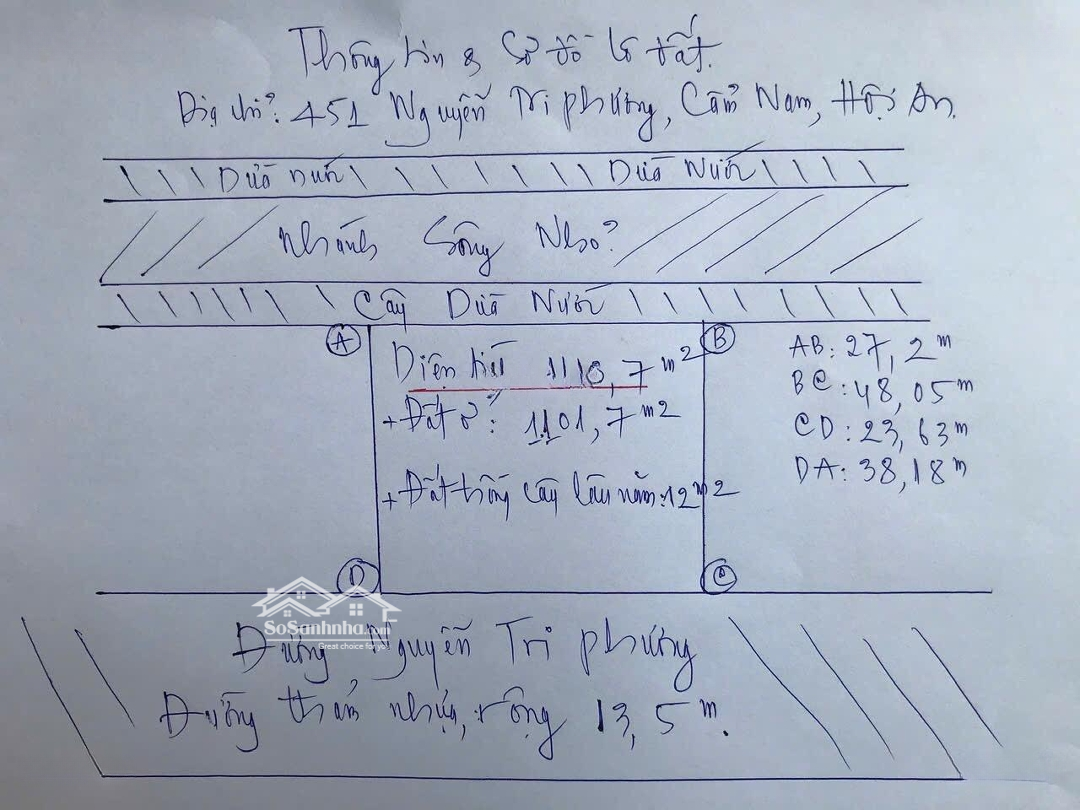 Thông tin & Sơ đồ lô đất.
Địa chỉ: 451 Nguyễn Tri phương, Cẩm Nam, Hội An.
Dừa nước Dừa Nước
Nhánh Sông Nhỏ
Cây Dừa Nước
A B
Diện tích 1110,7 m2
+ Đất ở: 1101,7 m2
+ Đất trồng cây lâu năm: 12 m2
AB: 27,2 m
BC: 48,05 m
CD: 23,63 m
DA: 38,18 m
D C
SoSanhnha.com
Great choice for you
Đường Nguyễn Tri phương
Đường thảm nhựa, rộng 13,5 m.